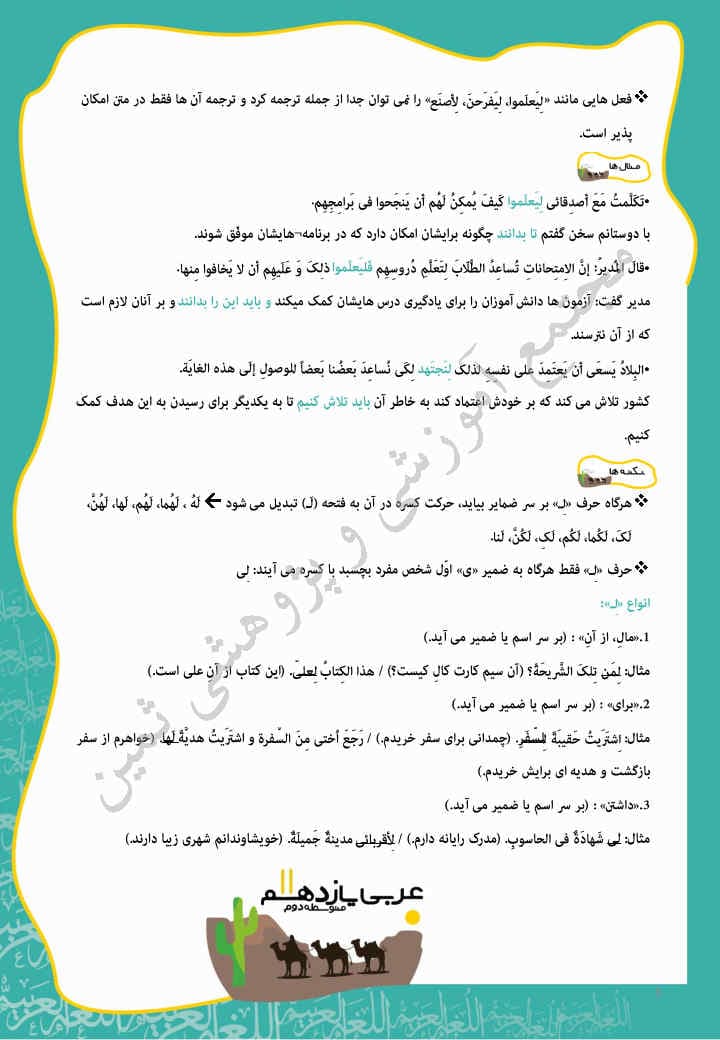 ❖ فعل هایی مانند «لِیَعلَموا، لِیَفرَحنَ، لِأصنَع» را نمی توان جدا از جمله ترجمه کرد و ترجمه آن ها فقط در متن امکان
پذیر است.
مثال ها
•تَکَلَّمتُ مَعَ أصدِقائی لِیَعلَموا کَیفَ یُمکِنُ لَهُم أن یَنجَحوا فی بَرامِجِهِم.
با دوستانم سخن گفتم تا بدانند چگونه برایشان امکان دارد که در برنامه¬هایشان موفّق شوند.
•قالَ المُدیرُ: إنَّ الاِمتِحاناتِ تُساعِدُ الطُّلّابَ لِتَعَلُّمِ دُروسِهِم فَلیَعلَموا ذلِکَ وَ عَلَیهِم أن لا یَخافوا مِنها.
مدیر گفت: آزمون ها دانش آموزان را برای یادگیری درس هایشان کمک میکند و باید این را بدانند و بر آنان لازم است
که از آن نترسند.
•البِلادُ یَسعَی أن یَعتَمِدَ علی نفسِهِ لذلکَ لِنَجتَهِد لِکَی نُساعِدَ بَعضُنا بَعضاً للوصولِ إلَی هذه الغایَة.
کشور تلاش می کند که بر خودش اعتماد کند به خاطر آن باید تلاش کنیم تا به یکدیگر برای رسیدن به این هدف کمک
کنیم.
نکته ها
❖ هرگاه حرف «لِـ» بر سر ضمایر بیاید، حرکت کسره در آن به فتحه (لَـ) تبدیل می شود ← لَهُ ، لَهُما، لَهُم، لَها، لَهُنَّ،
لَکَ، لَکُما، لَکُم، لَکِ، لَکُنَّ، لَنا.
❖ حرف «لِـ» فقط هرگاه به ضمیر «ی» اوّل شخص مفرد بچسبد با کسره می آیند: لِی
انواع «لِـ»:
1.«مالِ، از آنِ» : (بر سر اسم یا ضمیر می آید.)
مثال: لِمَن تِلکَ الشَّریحَةُ؟ (آن سیم کارت کالِ کیست؟) / هذا الکِتابُ لِعلیّ. (این کتاب از آنِ علی است.)
2.«برای» : (بر سر اسم یا ضمیر می آید.)
مثال: اِشتَرَیتُ حَقیبَةً لِلسَّفَرِ. (چمدانی برای سفر خریدم.) / رَجَعَ أختی مِنَ السَّفرة و اشتَرَیتُ هدیَّةً لَها. (خواهرم از سفر
بازگشت و هدیه ای برایش خریدم.)
3.«داشتن» : (بر سر اسم یا ضمیر می آید.)
مثال: لِی شَهادَةٌ فی الحاسوبِ. (مدرک رایانه دارم.) / لِأقرِبائی مدینةٌ جَمیلَةٌ. (خویشاوندانم شهری زیبا دارند.)
عربی یازدهم
متوسطه دوم
مجتمع آموزشی و پژوهشی ثمین
اللغة العربیة